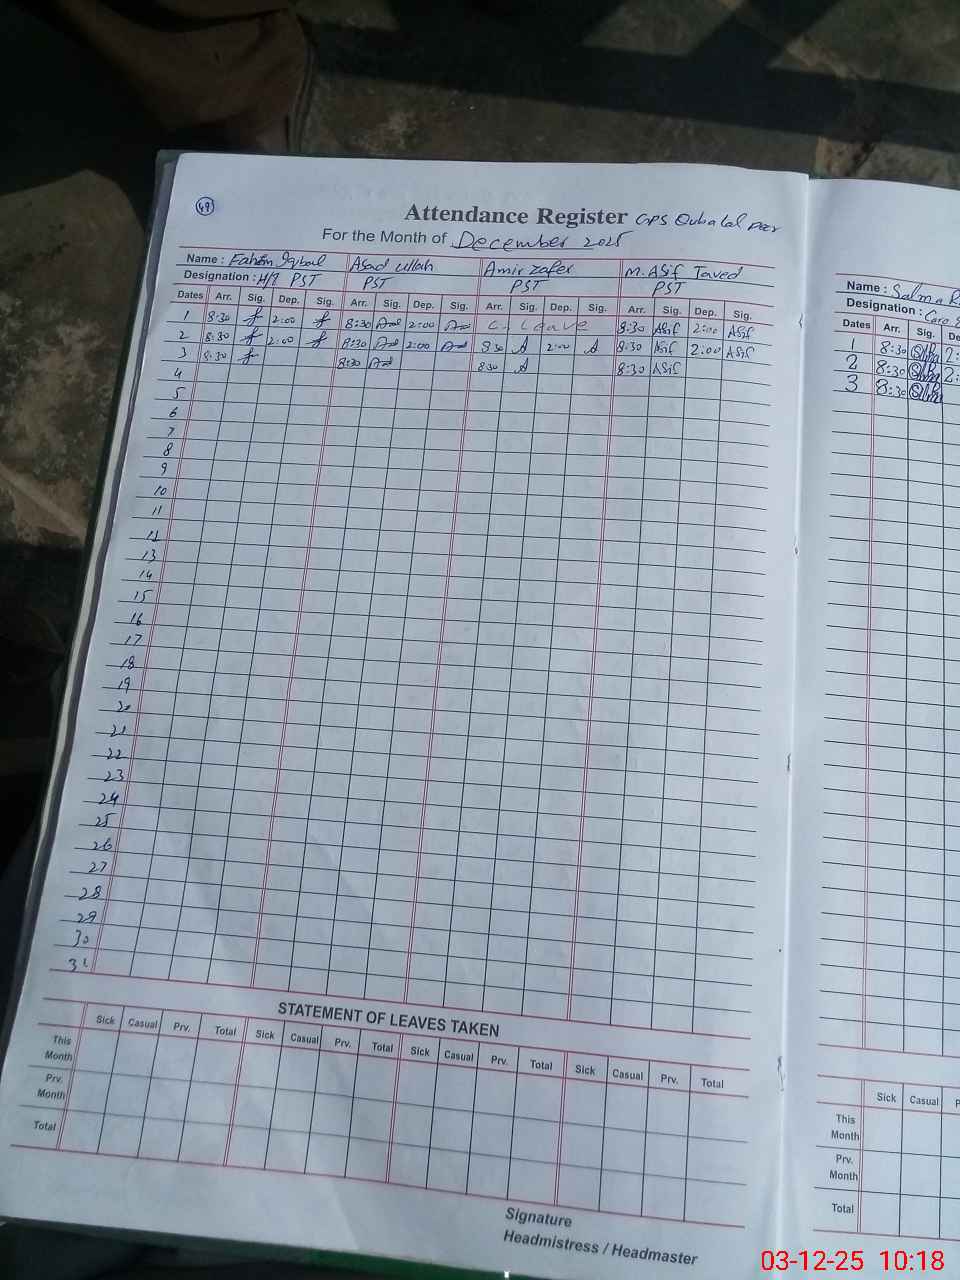 49
Attendance Register GPS Qubalal peer
For the Month of December 2025
Name : Fahim Iqbal Asad ullah Amir Zafer M. Asif Javed
Designation : H/T PST PST PST PST
Dates Arr. Sig. Dep. Sig. Arr. Sig. Dep. Sig. Arr. Sig. Dep. Sig. Arr. Sig. Dep. Sig.
1 8:30 2:00 8:30 2:00 C. Leave 8:30 Asif 2:00 Asif
2 8:30 2:00 8:30 2:00 8:30 A 2:00 A 8:30 Asif 2:00 Asif
3 8:30 8:30 8:30 A 8:30 Asif
4
5
6
7
8
9
10
11
12
13
14
15
16
17
18
19
20
21
22
23
24
25
26
27
28
29
30
31
STATEMENT OF LEAVES TAKEN
Sick Casual Prv. Total Sick Casual Prv. Total Sick Casual Prv. Total Sick Casual Prv. Total
This Month
Prv. Month
Total
Signature
Headmistress / Headmaster
Name : Salma
Designation : Care
Dates Arr. Sig. De
1 8:30 2:
2 8:30 2:
3 8:30
Sick Casual P
This Month
Prv. Month
Total
03-12-25 10:18